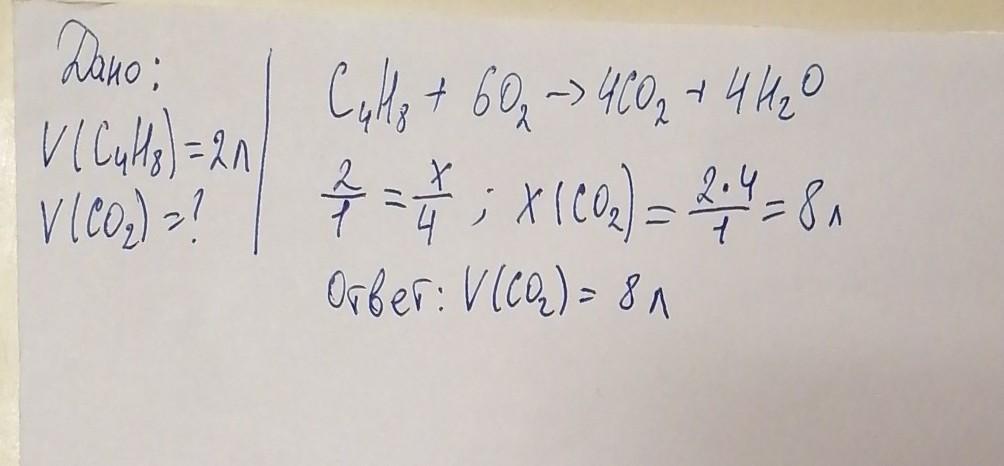 Дано:
V(C₄H₈)=2л
V(CO₂)=?
C₄H₈ + 6O₂ → 4CO₂ + 4H₂O
2/1 = x/4 ; x(CO₂) = 2·4/1 = 8л
Ответ: V(CO₂) = 8л